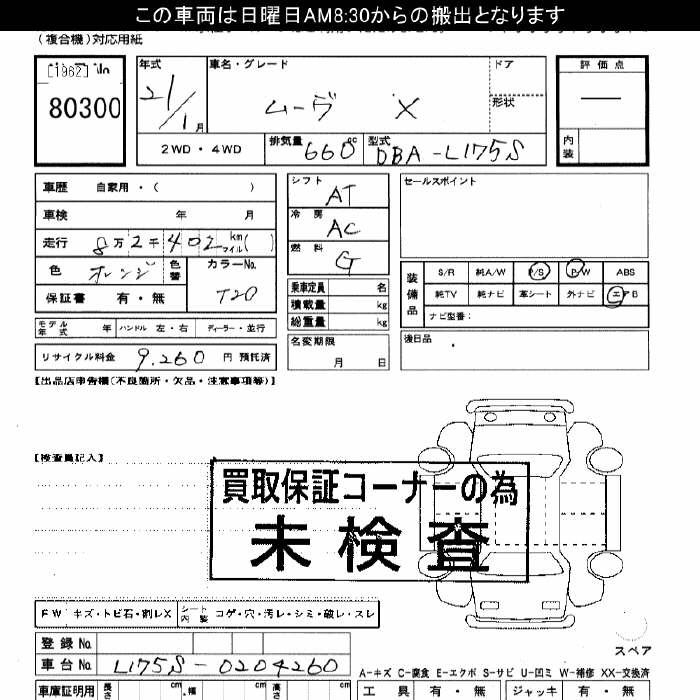 この車両は日曜日AM8:30からの搬出となります
(複合機)対応用紙
[1962]
80300
年式 21/1月
車名・グレード ムーヴ X
ドア
形状
評価点 —
内装
2WD・4WD
排気量 660cc
型式 DBA-L175S
車歴 自家用・( )
車検 年 月
走行 8万2千402km マイル( )
色 オレンジ
色替
カラーNo. T20
保証書 有・無
モデル年式 年 ハンドル 左・右 ディーラー・並行
リサイクル料金 9.260 円 預託済
シフト AT
冷房 AC
燃料 G
乗車定員 名
積載量 kg
総重量 kg
名変期限 月 日
セールスポイント
装備品
S/R 純A/W P/S P/W ABS
純TV 純ナビ 革シート 外ナビ エアB
ナビ型番:
後日品
【出品店申告欄(不良箇所・欠品・注意事項等)】
【検査員記入】
買取保証コーナーの為
未検査
FW キズ・トビ石・割レX
シート内装 コゲ・穴・汚レ・シミ・破レ・スレ
スペア
登録No.
車台No. L175S-0204260
A-キズ C-腐食 E-エクボ S-サビ U-凹ミ W-補修 XX-交換済
車庫証明用 長さ cm 幅 cm 高さ cm
工具 有・無 ジャッキ 有・無